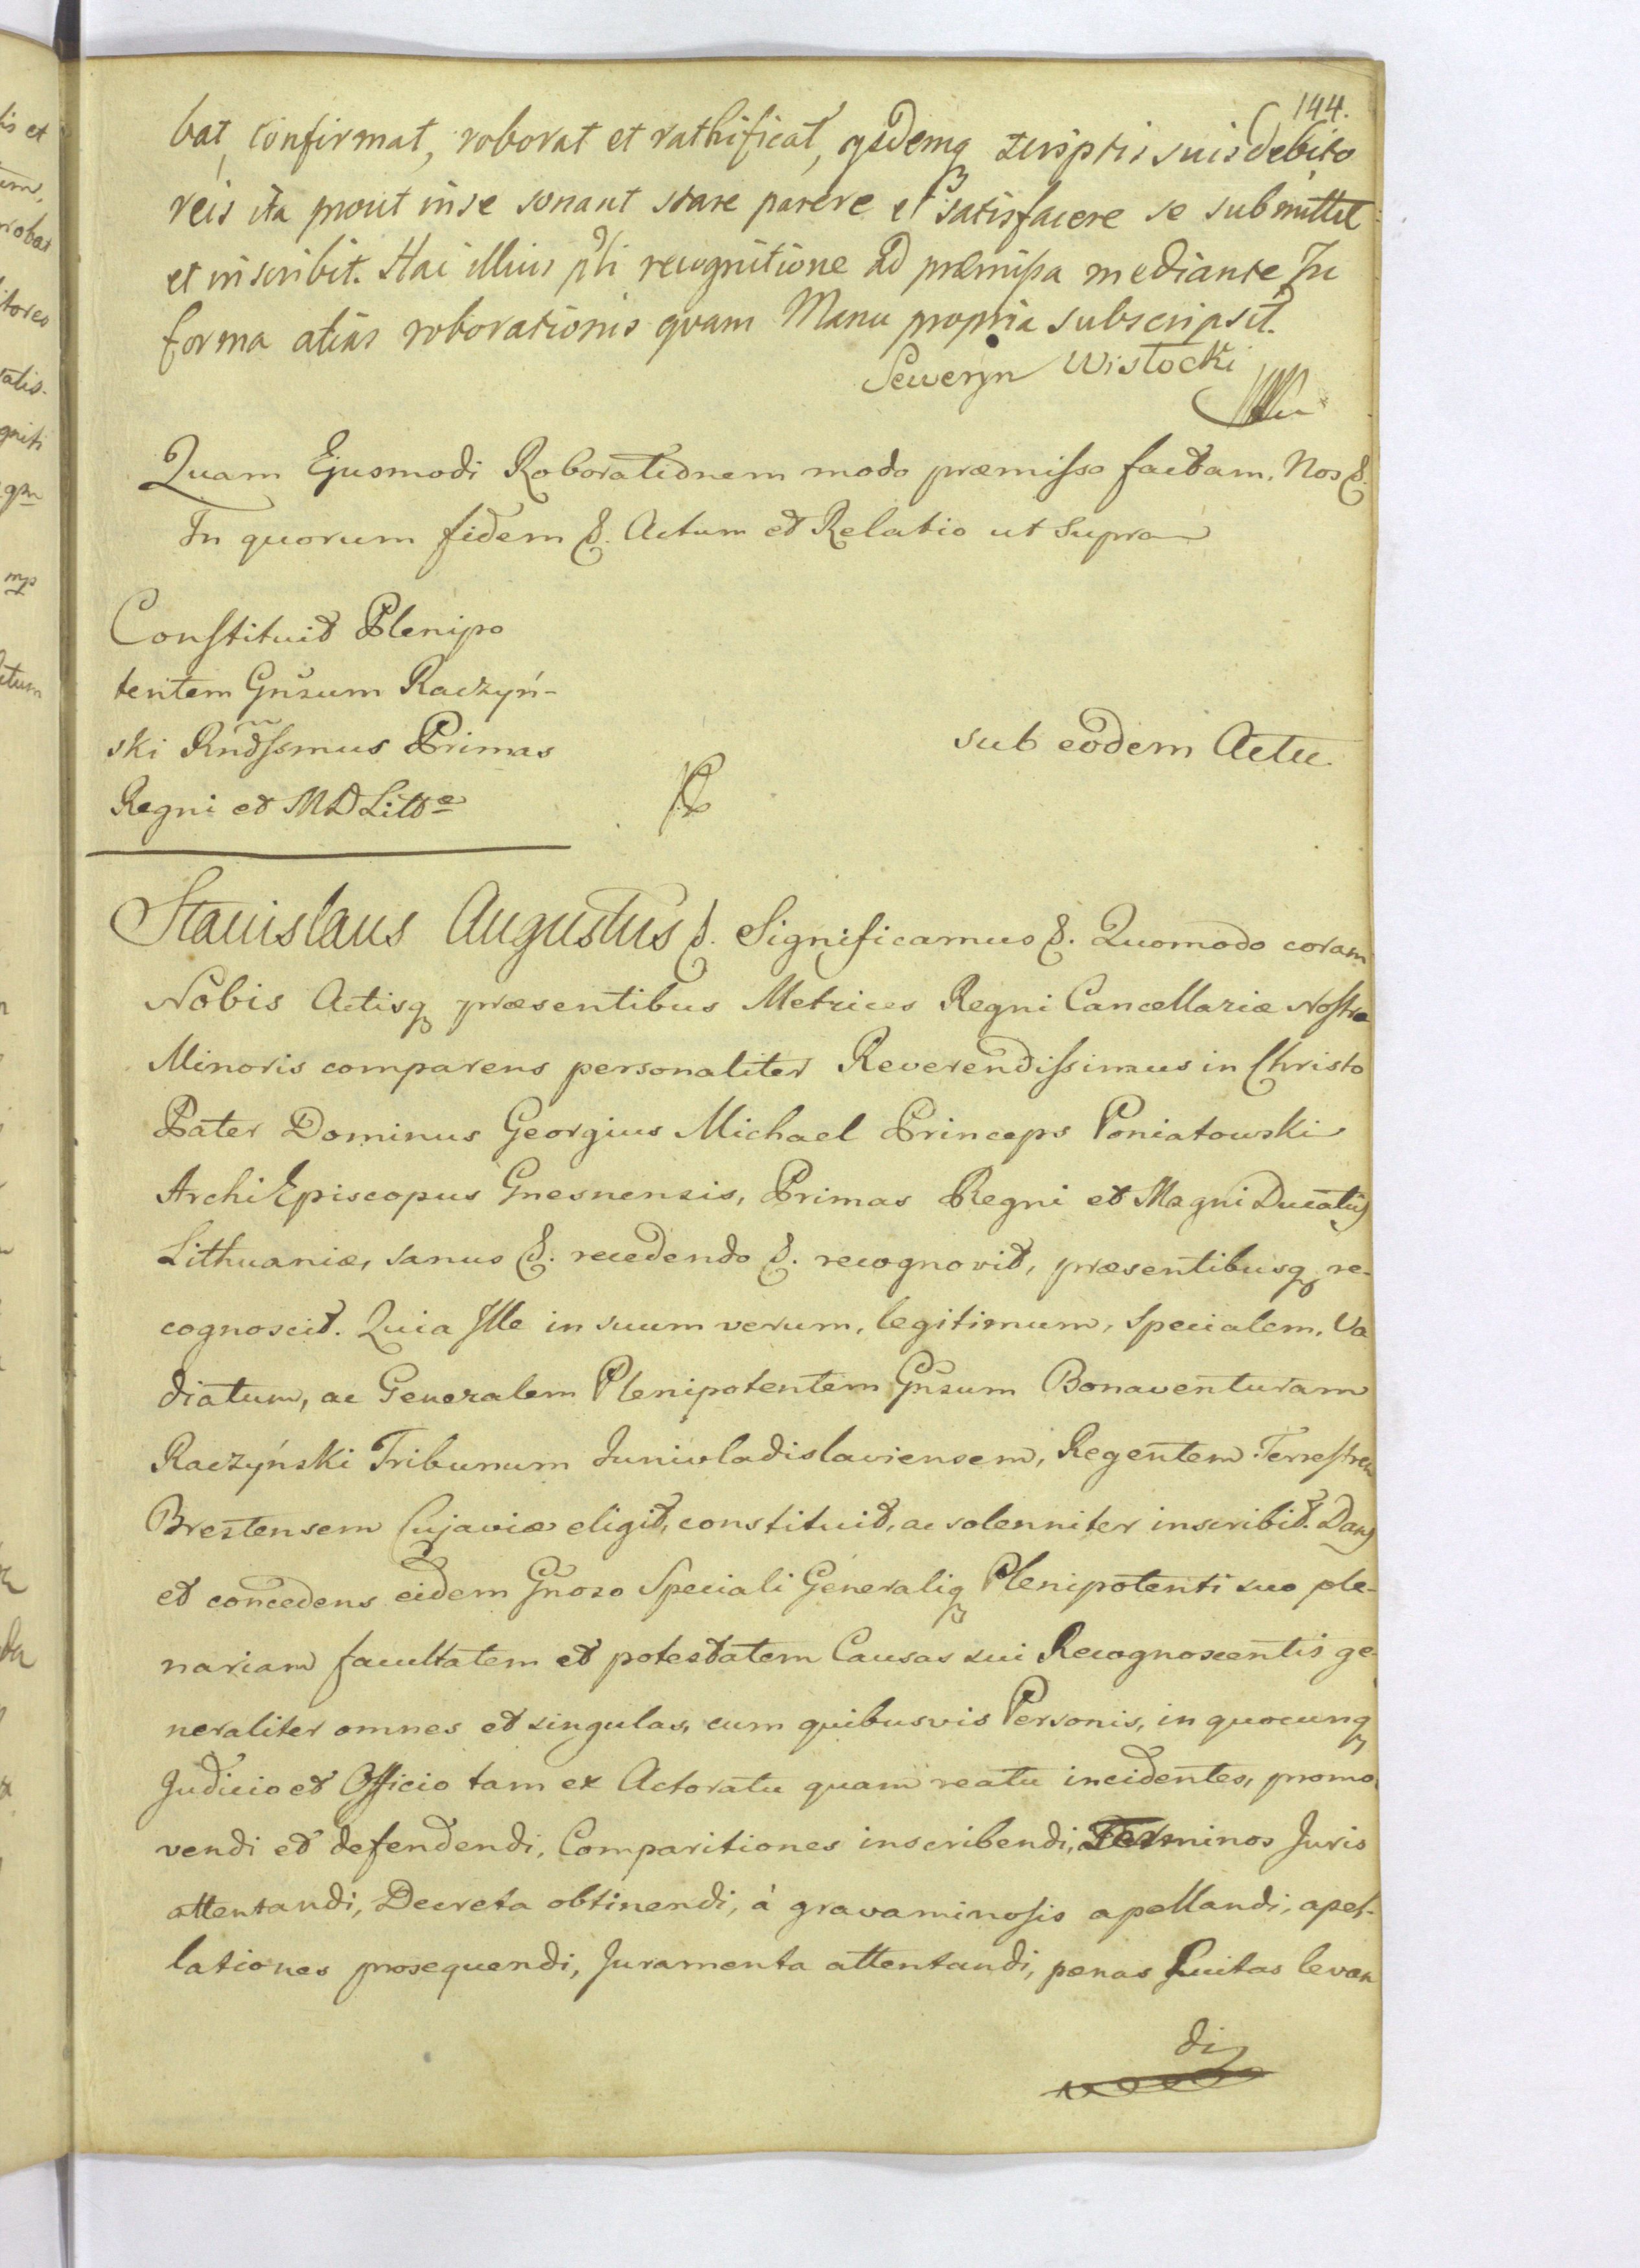 144.
bat, confirmat, roborat et rathificat, ysdemq scriptis suis debito
reis ita prout in se sonant stare parere et satisfacere se submittit
et inscribit. Hac illius pñti recognitione ad præmissa mediante In
forma alias roborationis quam Manu propria subscripsit.
Seweryn Wisłocki
Quam Ejusmodi Roborationem modo præmisso factam. Nos &.
In quorum fidem &. Actum et Relatio ut supra
Constituit Plenipo
tentem Gnsum Raczyń-
ski Rndssmus Primas
Regni et MD Littæ
sub eodem Actu.
Stanislaus Augustus &. Significamus &. Quomodo coram
Nobis Actisq præsentibus Metrices Regni Cancellariæ Nostræ
Minoris comparens personaliter Reverendissimus in Christo
Pater Dominus Georgius Michael Princeps Poniatowski
ArchiEpiscopus Gnesnensis, Primas Regni et Magni Ducatus
Lithuaniæ, sanus &. recedendo &. recognovit, præsentibusq re-
cognoscit. Quia Ille in suum verum, legitimum, specialem, Va
diatum, ac Generalem Plenipotentem Gnsum Bonaventuram
Raczyński Tribunum Junivladislaviensem, Regentem Terrestrem
Brestensem Cujaviæ eligit, constituit, ac solenniter inscribit. Dans
et concedens eidem Gnoso Speciali Generaliq Plenipotenti suo ple-
nariam facultatem et potestatem Causas sui Recognoscentis ge-
neraliter omnes et singulas, cum quibusvis Personis, in quocunq
Judicio et Officio tam ex Actoratu quam reatu incidentes, promo
vendi et defendendi, Comparitiones inscribendi, Terminos Juris
attentandi, Decreta obtinendi, à gravaminosis apellandi, apel-
lationes prosequendi, Juramenta attentandi, penas luitas levan
di